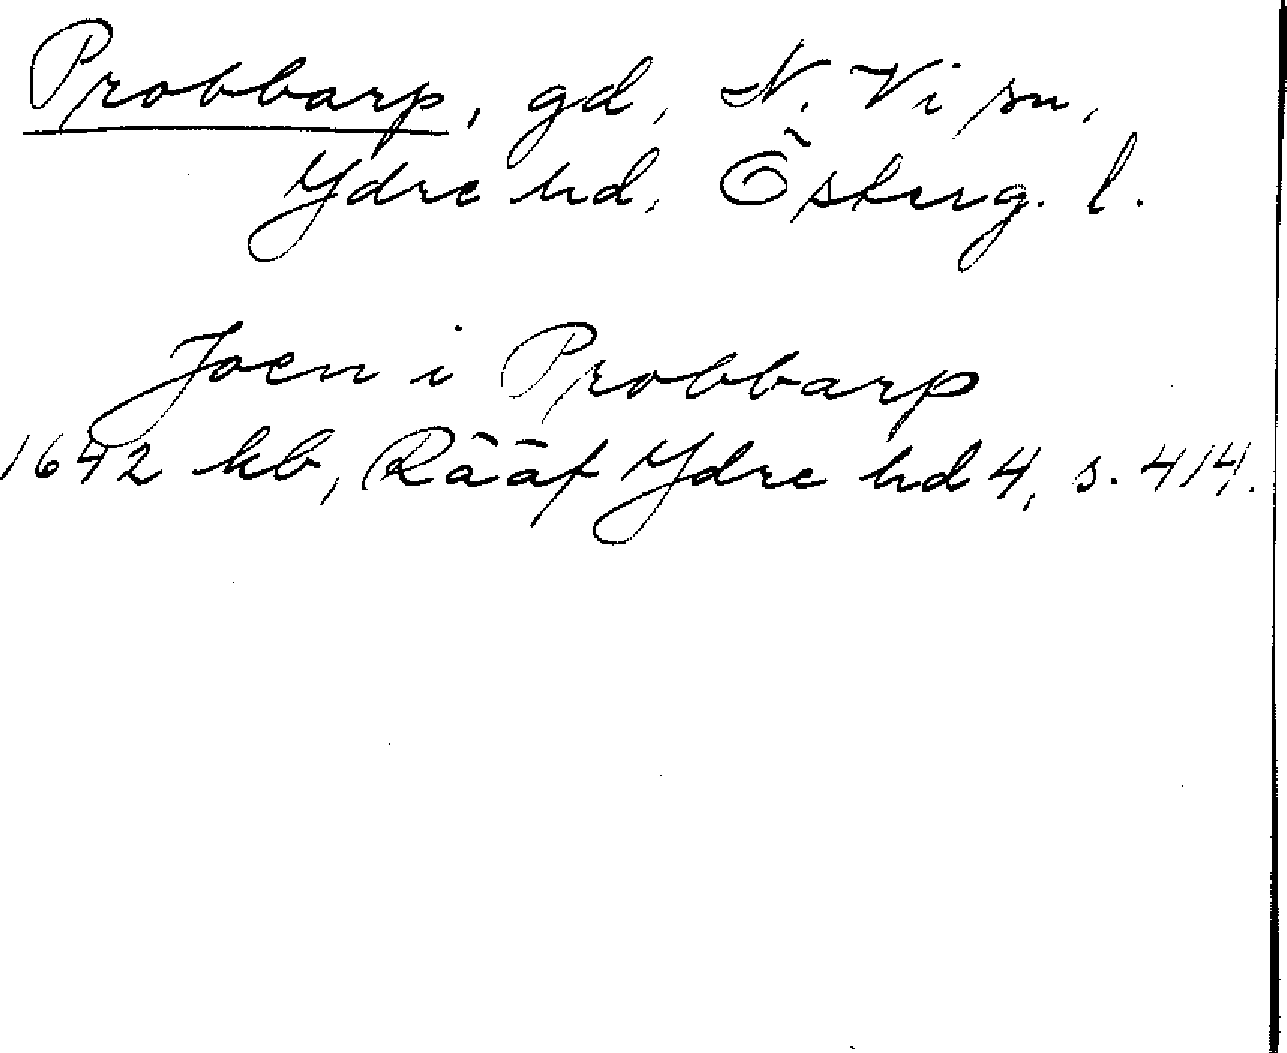 Probbarp, gd, N. Vi sn,
Ydre hd, Österg. l.
Joen i Probbarp
1642 kb, Rääf Ydre hd 4, s. 414.